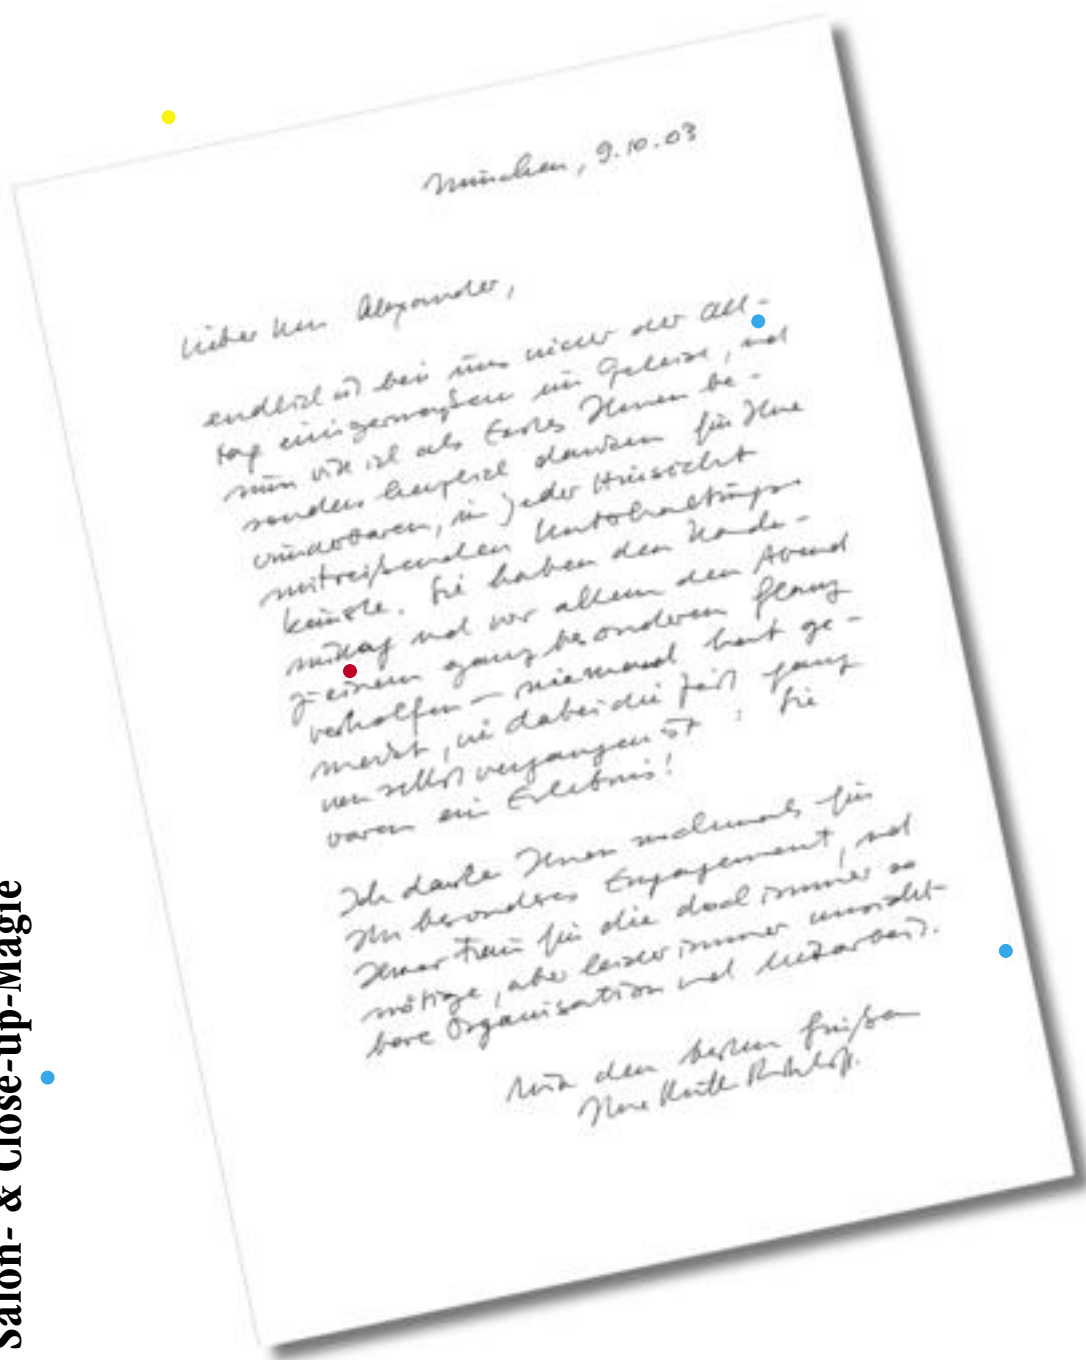 München, 9.10.03
Lieber Herr Alexander,
endlich ist bei uns wieder der All-
tag einigermaßen im Geleise, und
nun will ich als Erstes Ihnen be-
sonders herzlich danken für Ihre
wunderbaren, in jeder Hinsicht
mitreißenden Unterhaltungs-
künste. Sie haben den Nach-
mittag und vor allem den Abend
zu einem ganz besonderen Glanz
verholfen – niemand hat ge-
merkt, wie dabei die Zeit ganz
von selbst vergangen ist : Sie
waren ein Erlebnis!
Ich danke Ihnen nochmals für
Ihr besonderes Engagement, und
Ihrer Frau für die doch immer so
nötige, aber leider immer unsicht-
bare Organisation und Mitarbeit.
Mit den besten Grüßen
Ihre
Salon- & Close-up-Magie